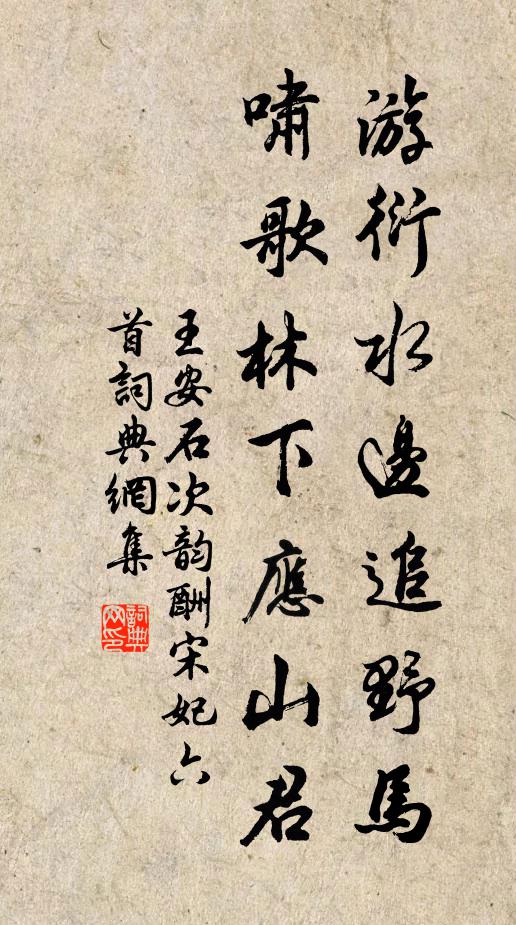 游衍水邊追野馬
嘯歌林下應山君
王安石次韵酬宋妃六
首詞典網集
詞典網印